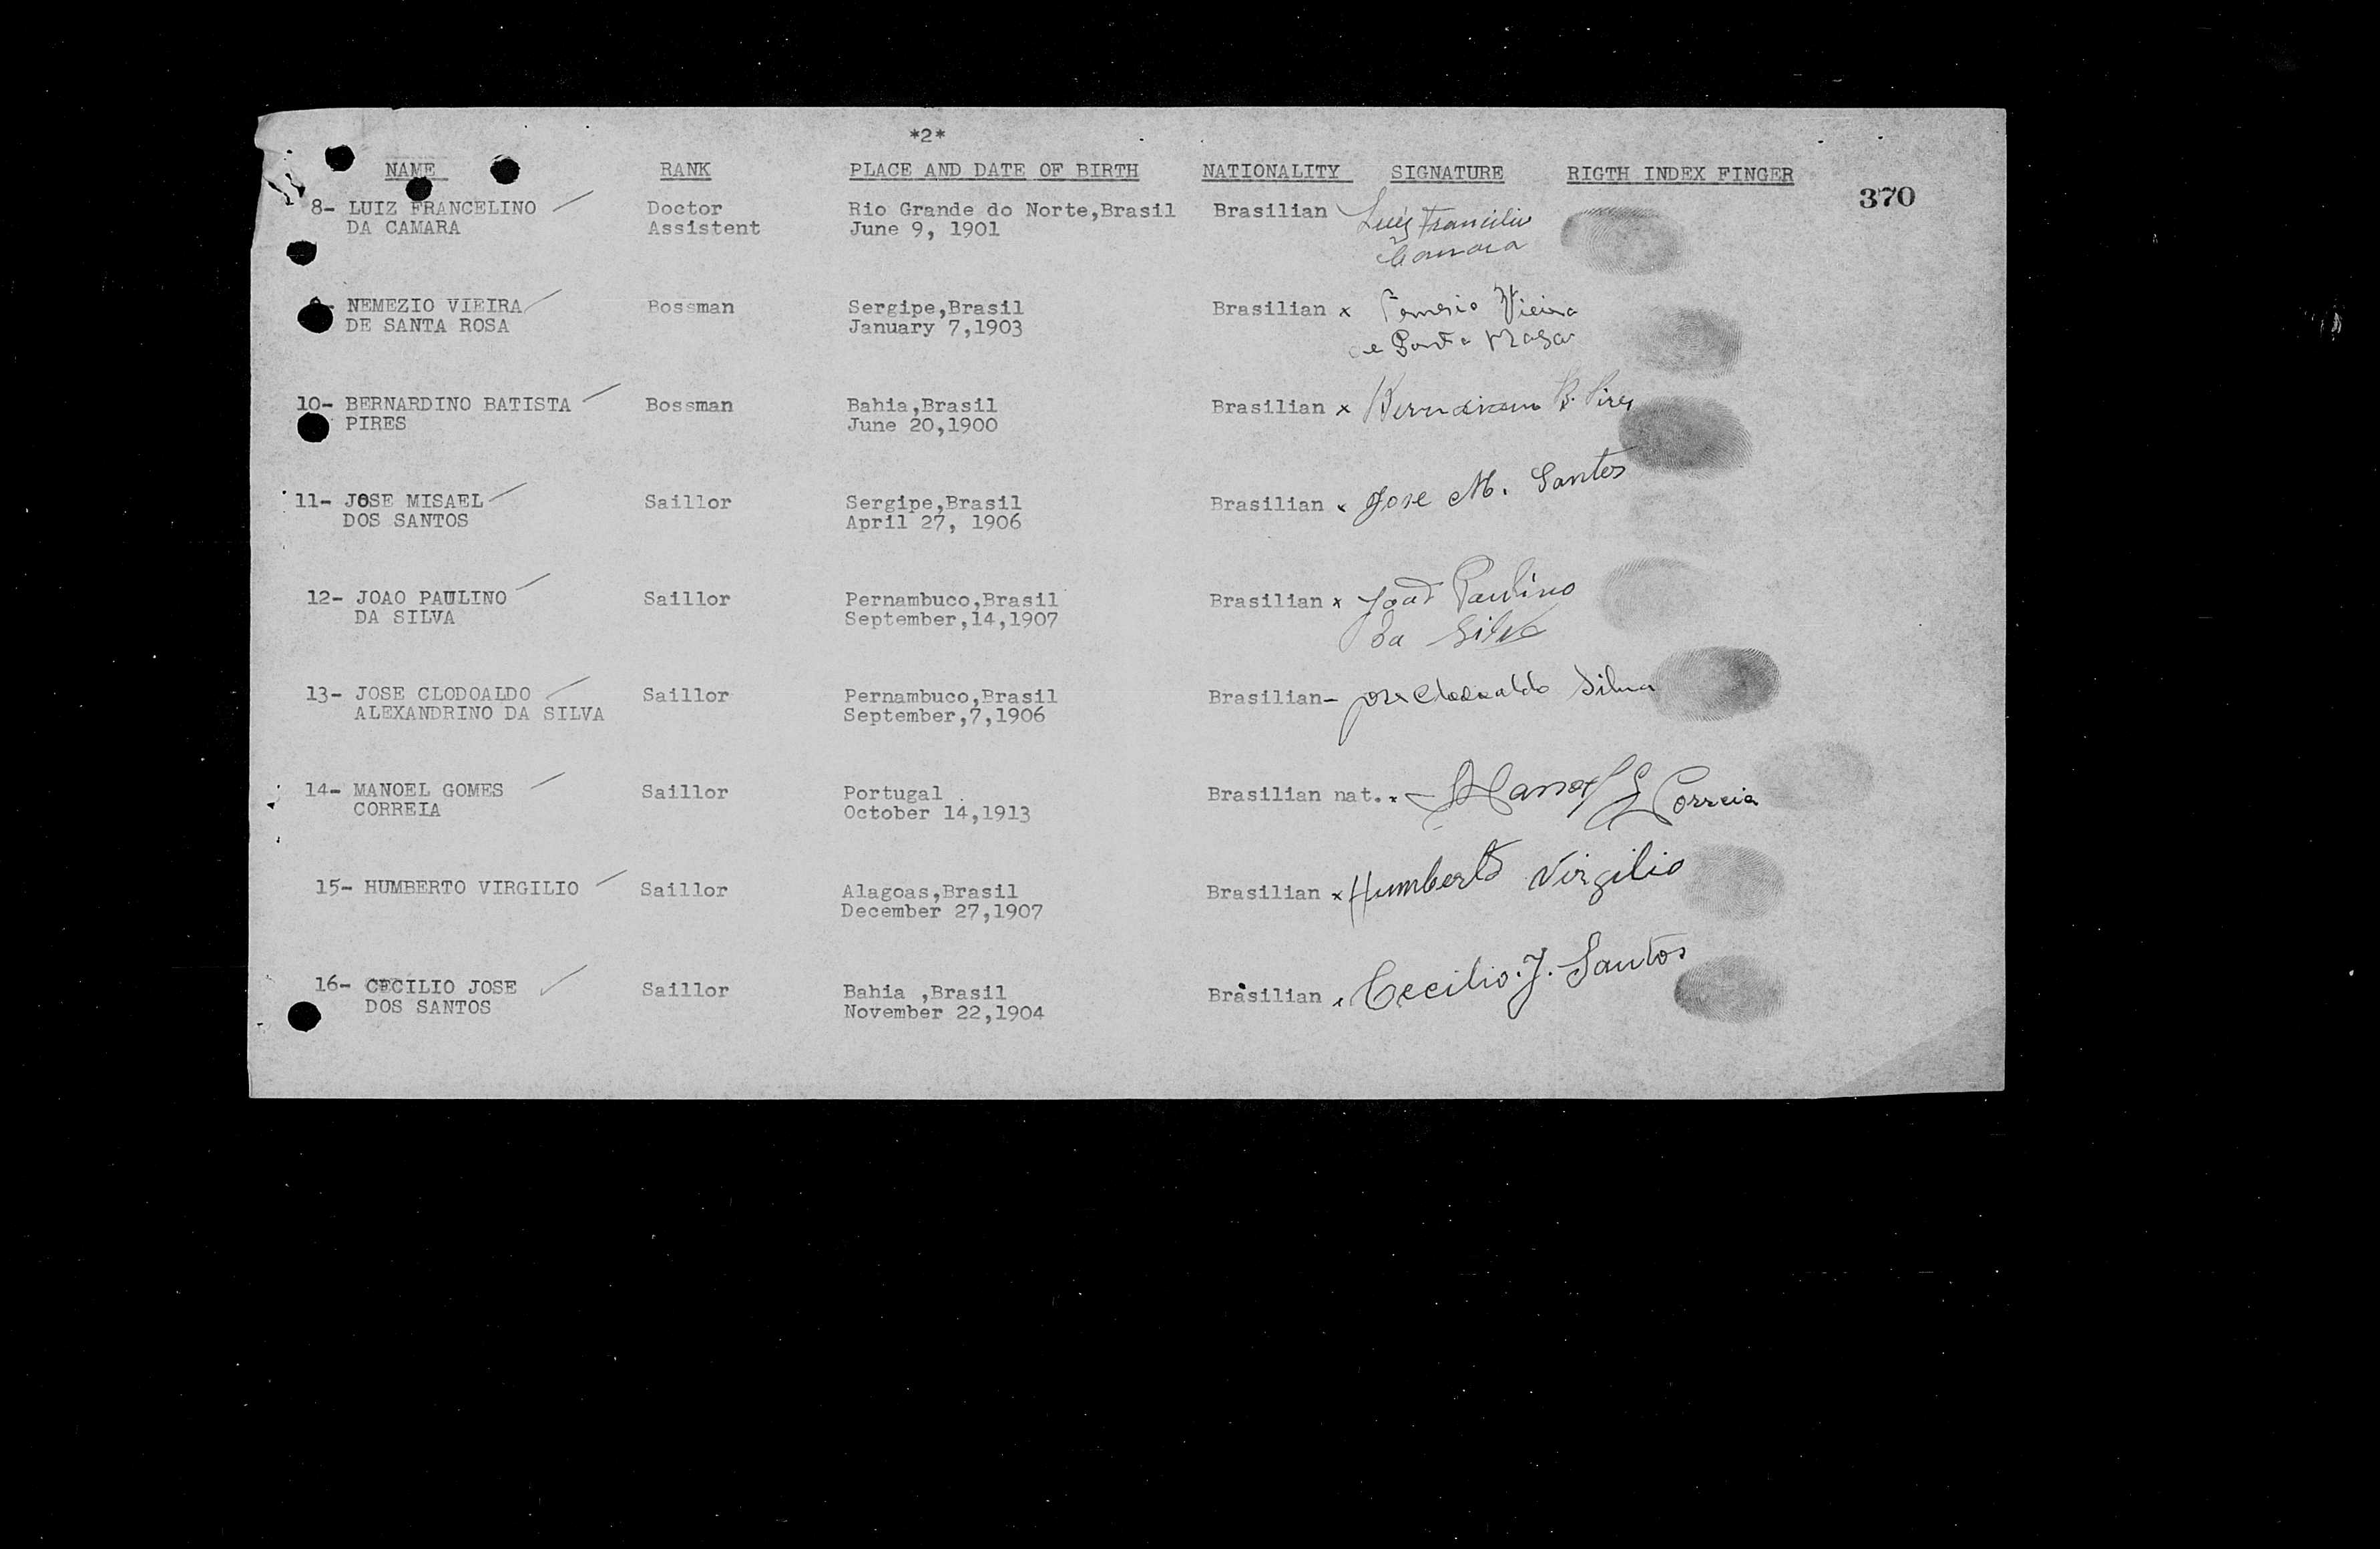 *2*
NAME RANK PLACE AND DATE OF BIRTH NATIONALITY SIGNATURE RIGTH INDEX FINGER
370
8- LUIZ FRANCELINO Doctor Rio Grande do Norte,Brasil Brasilian
DA CAMARA Assistent June 9, 1901
Camara
NEMEZIO VIEIRA Bossman Sergipe,Brasil Brasilian x Vieira
DE SANTA ROSA January 7,1903
10- BERNARDINO BATISTA Bossman Bahia,Brasil Brasilian x B. Pires
PIRES June 20,1900
11- JOSE MISAEL Saillor Sergipe,Brasil Brasilian x Jose M. Santos
DOS SANTOS April 27, 1906
12- JOAO PAULINO Saillor Pernambuco,Brasil Brasilian x Joao Paulino
DA SILVA September,14,1907 da Silva
13- JOSE CLODOALDO Saillor Pernambuco,Brasil Brasilian- Jose Clodoaldo Silva
ALEXANDRINO DA SILVA September,7,1906
14- MANOEL GOMES Saillor Portugal Brasilian nat. x Manoel G Correia
CORREIA October 14,1913
15- HUMBERTO VIRGILIO Saillor Alagoas,Brasil Brasilian x Humberto Virgilio
December 27,1907
16- CECILIO JOSE Saillor Bahia ,Brasil Brasilian x Cecilio. J. Santos
DOS SANTOS November 22,1904